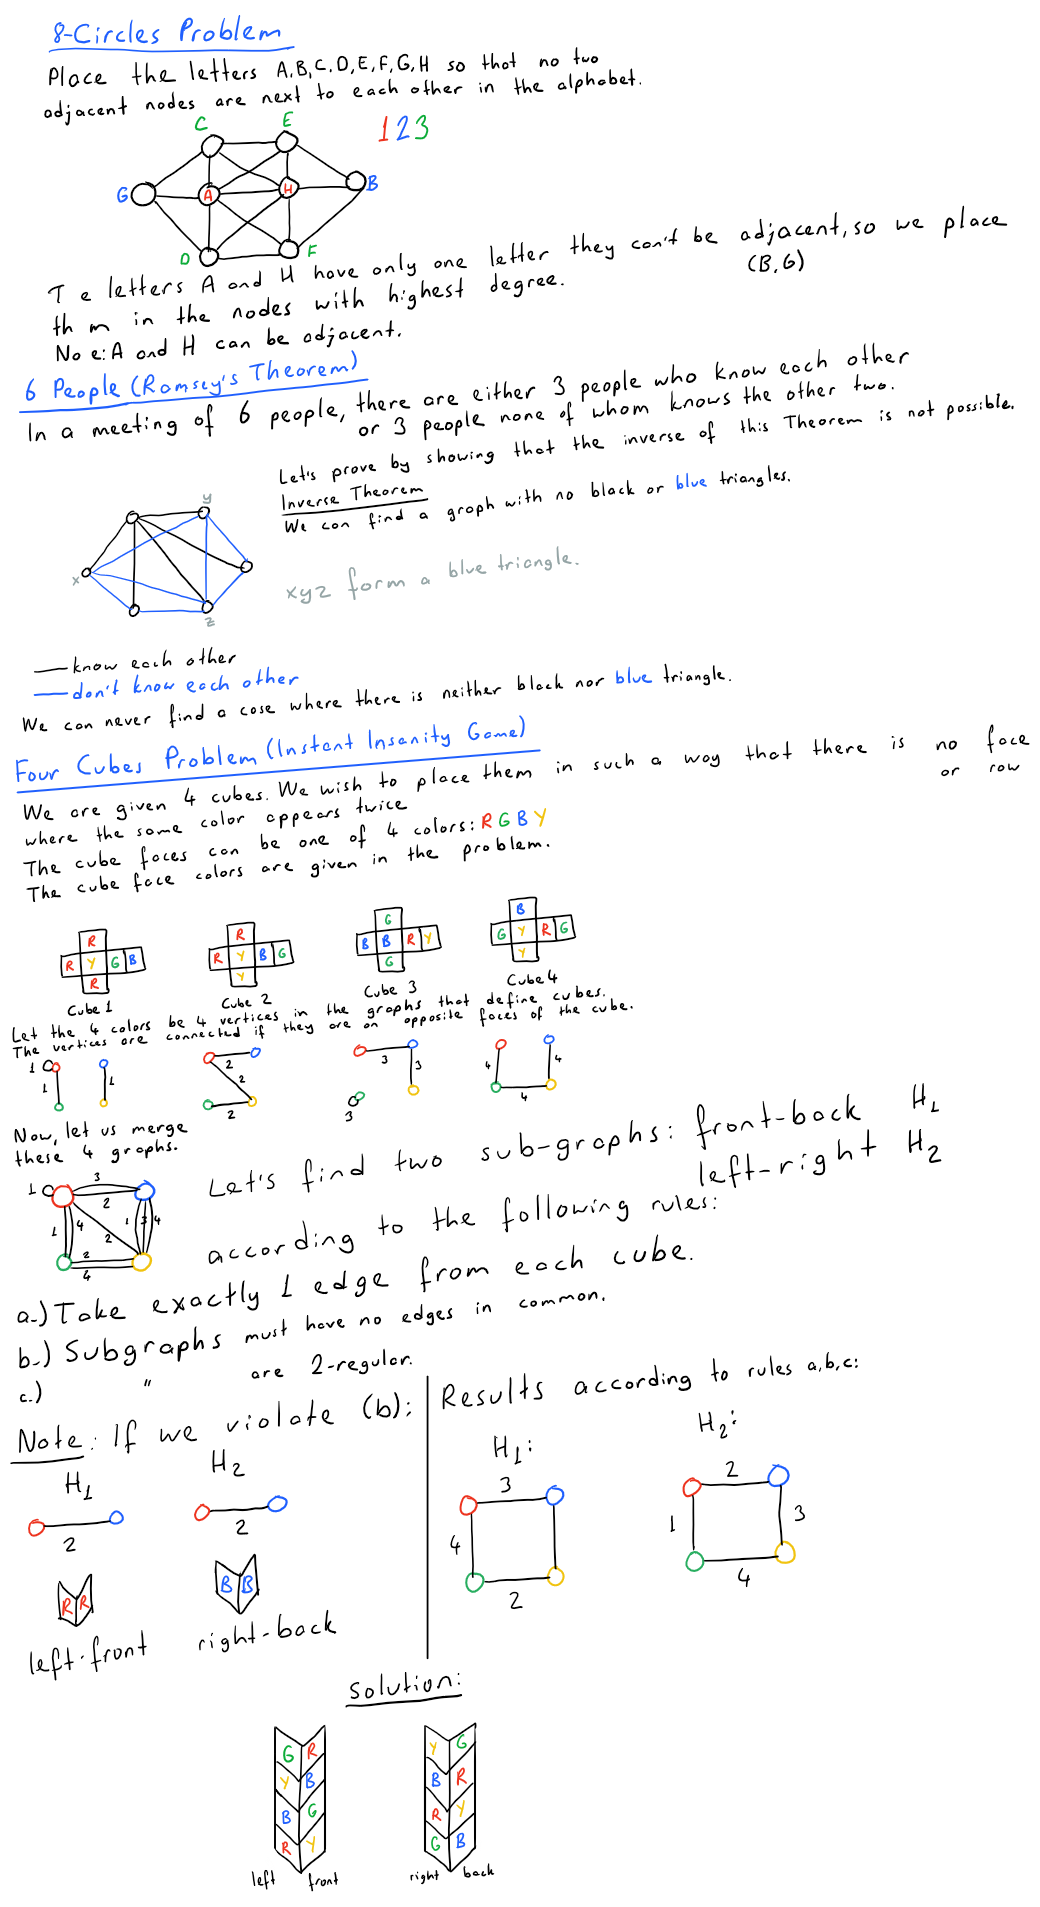 8-Circles Problem
Place the letters A,B,C,D,E,F,G,H so that no two
adjacent nodes are next to each other in the alphabet.
C E 1 2 3
G A H B
D F
T e letters A and H have only one letter they can't be adjacent, so we place
(B,G)
th m in the nodes with highest degree.
No e: A and H can be adjacent.
6 People (Ramsey's Theorem)
In a meeting of 6 people, there are either 3 people who know each other
or 3 people none of whom knows the other two.
Let's prove by showing that the inverse of this Theorem is not possible.
Inverse Theorem
We can find a graph with no black or blue triangles.
y
x
z
xyz form a blue triangle.
know each other
don't know each other
We can never find a case where there is neither black nor blue triangle.
Four Cubes Problem (Instant Insanity Game)
We are given 4 cubes. We wish to place them in such a way that there is no face
or row
where the same color appears twice
The cube faces can be one of 4 colors: R G B Y
The cube face colors are given in the problem.
R
R Y G B
R
Cube 1
R
R Y B G
Y
Cube 2
G
B B R Y
G
Cube 3
B
G Y R G
Y
Cube 4
Let the 4 colors be 4 vertices in the graphs that define cubes.
The vertices are connected if they are on opposite faces of the cube.
1 1 1
2 2 2
3 3 3
4 4 4
Now, let us merge
these 4 graphs.
3
1 2
1 4 2 1 3 4
2
4
Let's find two sub-graphs: front-back H1
left-right H2
according to the following rules:
a.) Take exactly 1 edge from each cube.
b.) Subgraphs must have no edges in common.
c.) " are 2-regular.
Note: If we violate (b):
H1 H2
2 2
R R B B
left-front right-back
Results according to rules a,b,c:
H1: H2:
3 2
4 1 3
2 4
Solution:
G R Y G
Y B B R
B G R Y
R Y G B
left front right back